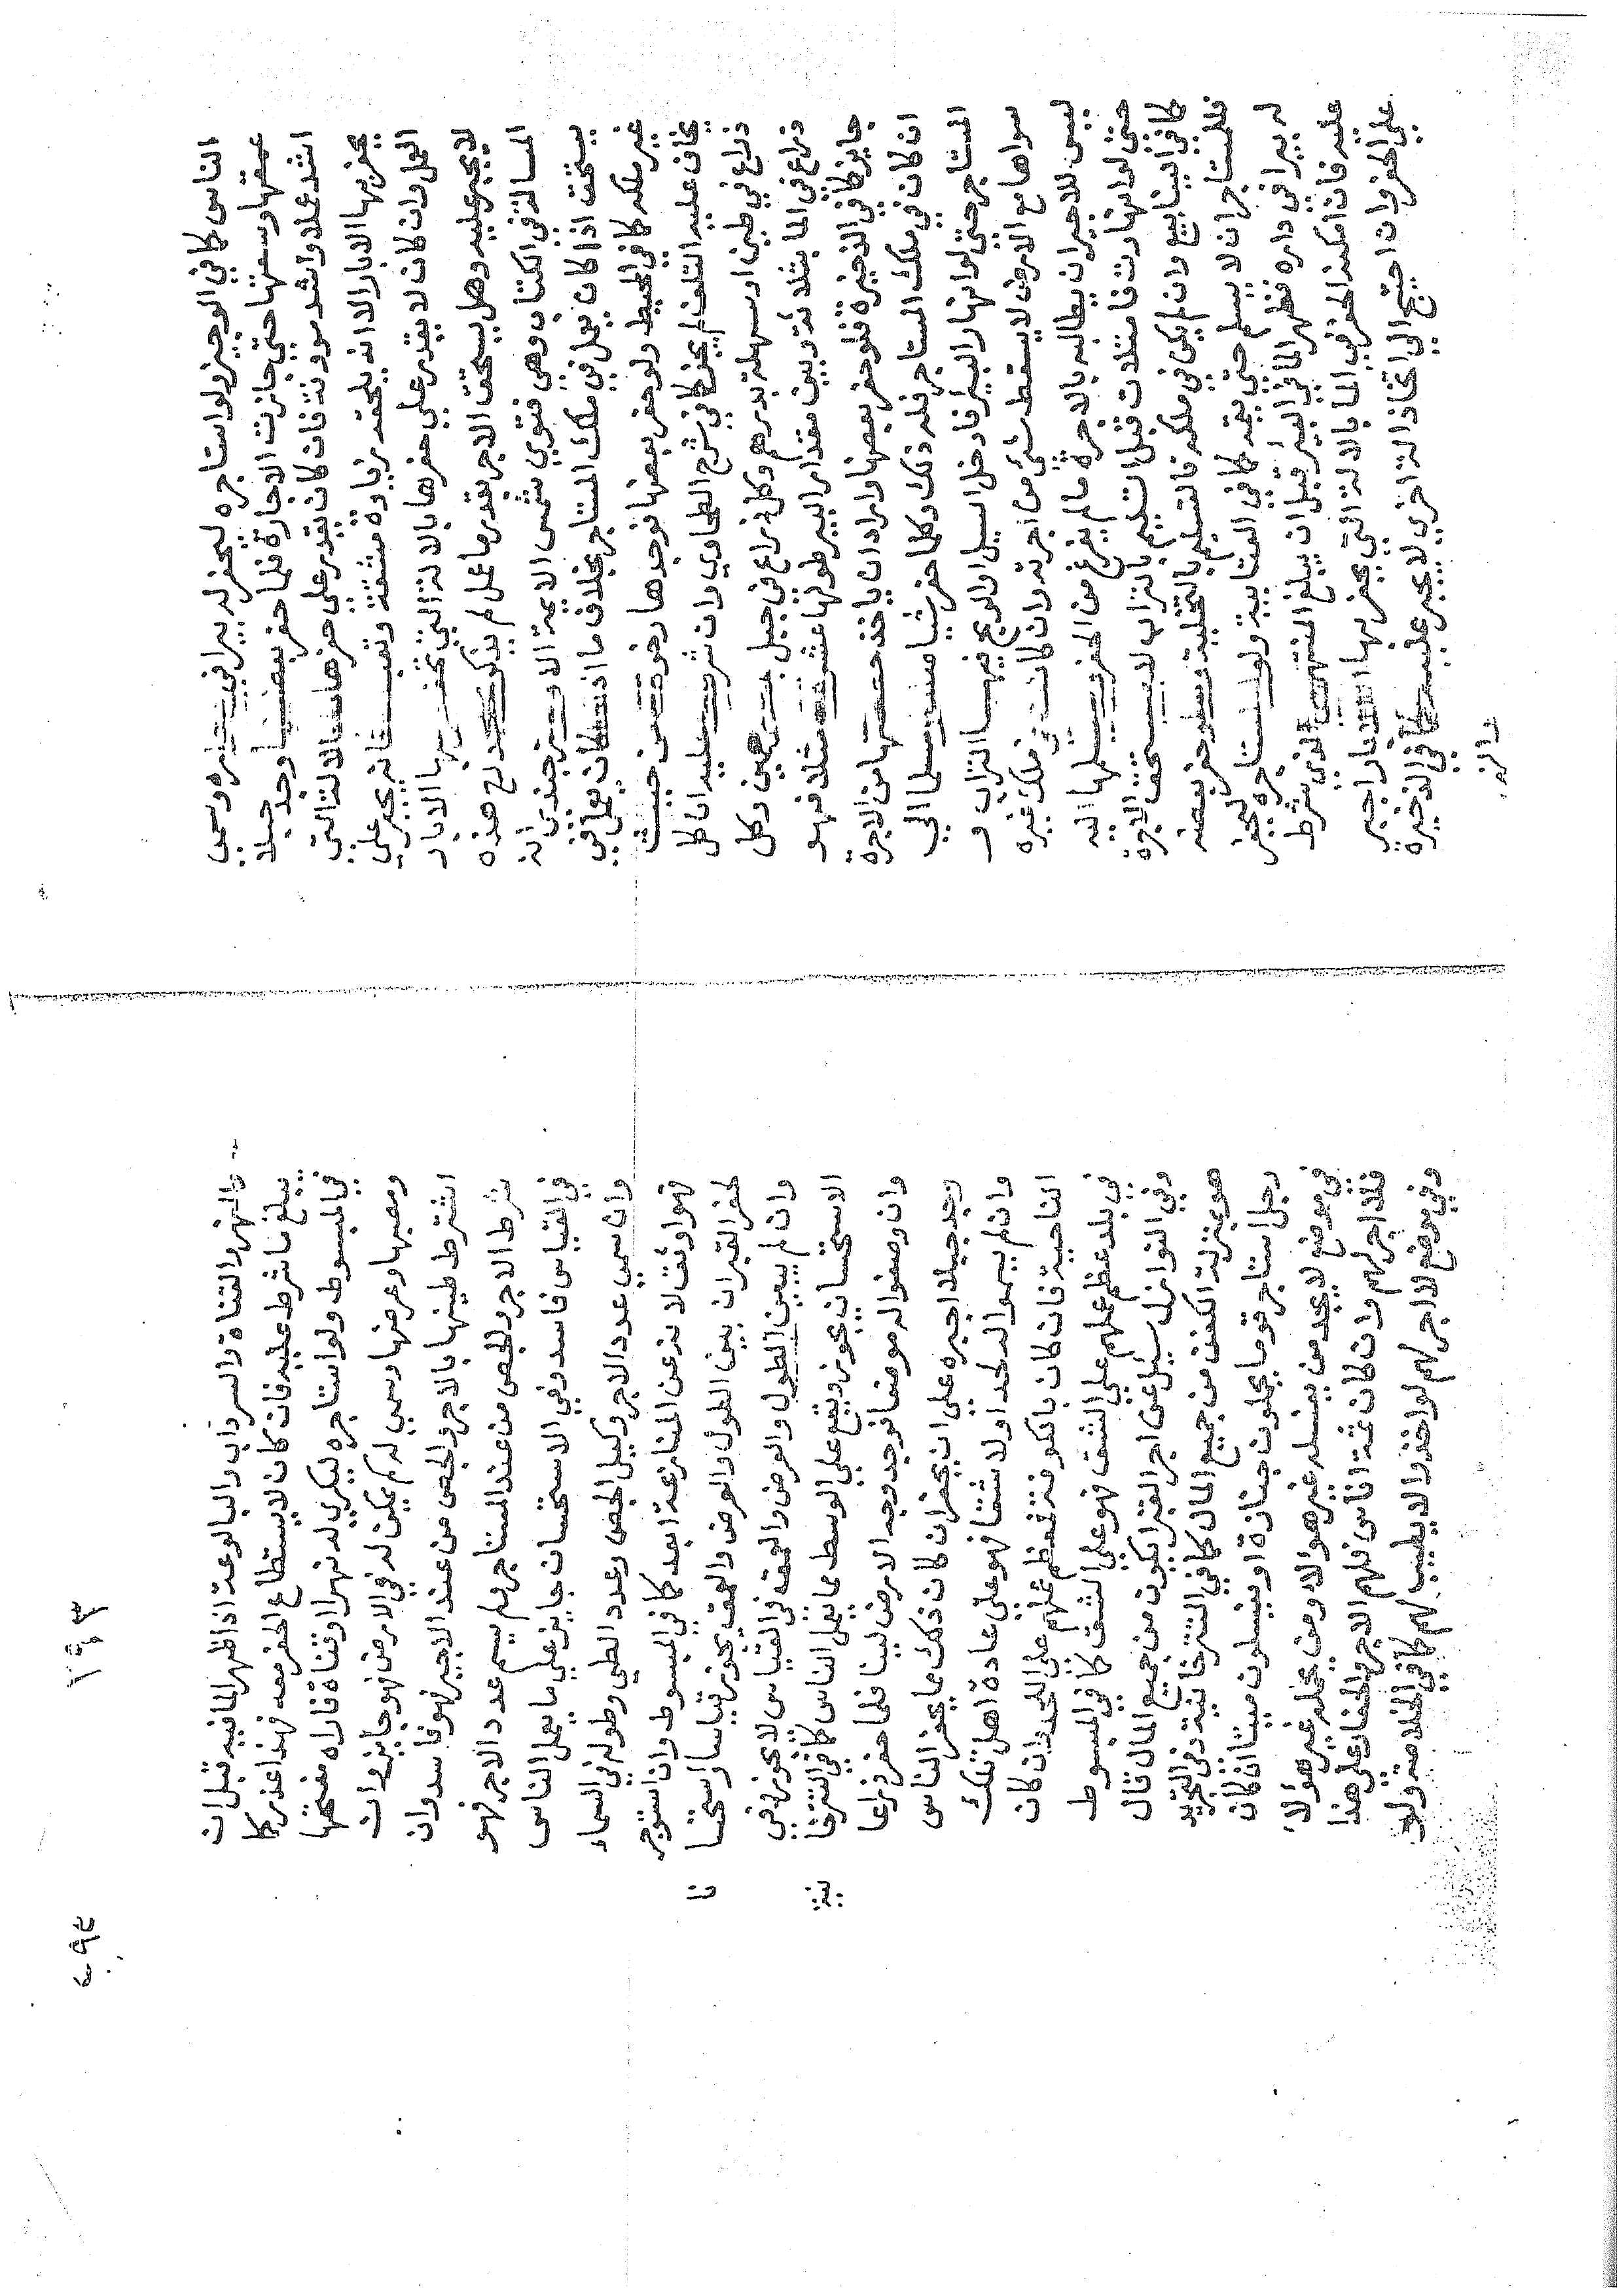 الناس كما في الوجيز ولو استاجره ليحفر له بيرا في داره وسمى
عمقها وسعتها حتى جازت الاجارة فلما حفر بعضها وجد جبلا
اشد عملا واشد موونة فان كان يقدر على حفرها بالالة التي
يحفر بها الابار الا انه يلحقه زيادة مشقة وتعب فانه يجبر على
العمل وان كان لا يقدر على حفرها بالالة التي تحفر بها الابار
لا يجبر عليه وهل يستحق الاجر بقدر ما عمل لم يذكر محمد رح هذه
المسالة في الكتاب وهي فتوى شمس الايمة الاوزجندي انه
يستحق اذا كان يعمل في ملك المستاجر بخلاف ما اذا كان يعمل في
غير ملكه كما في المحيط ولو حفر بعضها فوجدها رخوة من حيث
يخاف عليه التلف لم يجبر كما في شرح الطحاوي وان شرط عليه ان كل
ذراع في طين او سهلة بدرهم وكل ذراع في جبل بدرهمين وكل
ذراع في الما بثلاثة وبين مقدار البير طولها عشرة مثلا فهو
جايز كما في الذخيرة فلو حفر بعضها واراد ان ياخذ حصتها من الاجرة
ان كان في ملك المستاجر فله ذلك وكلما حفر شيا صار مسلما الى
المستاجر حتى لو انهار البير فادخل السيل او الريح فيها التراب و
سواها مع الارض لا يسقط شئ من اجرته وان كانت في ملك غيره
ليس للاجير ان يطالبه بالاجرة ما لم يفرغ من الحفر ويسلمها اليه
حتى لو انهارت فامتلات قبل التسليم بالتراب لا يستحق الاجرة
كما في الينابيع وان لم يكن في ملكه فالتسليم بالتخلية ولو حفر بعضه
فللمستاجر ان لا يسلم حتى يعقد كما في الغياثية ولو استاجره ليحفر
له بيرا في داره فظهر الما في البير قبل ان يبلغ المنتهى الذي شرط
عليه فان امكنه الحفر في الما بالالة التي يحفر بها الابار اجبر
على الحفر وان احتيج الى اتخاذ الة اخرى لا يجبر عليه كما في الذخيرة
والنهر
١٩٣
٤٩٤
والنهر والقناة والسرداب والبالوعة اذا ظهر الما فيه قبل ان
يبلغ ما شرط عليه فان كان لا يستطاع الحفر معه فهذا عذر كما
في المبسوط ولو استاجره ليكري له نهرا او قناة فاراه مفتحها
ومصبها وعرضها وسمى له كم يمكن له في الارض فهو جايز وان
اشترط طيها بالاجر والجص من عند الاجير فهو فاسد وان
شرط الاجر والجص من عند المستاجر ولم يسم عدد الاجر فهو
في القياس فاسد وفي الاستحسان جايز على ما يعمل الناس
وان سمى عدد الاجر وكيل الجص وعدد الطي وطوله في السماء
فهو اوثق لانه عن المنازعة ابعد كما في المبسوط وان استوجر
لحفر القبر ان بين الطول والعرض والعمق يجوز قياسا واستحسا
نا
وان لم يبين الطول والعرض والعمق في القياس لا يجوز وفي
الاستحسان يجوز ويقع على الوسط مما يعمل الناس كما في التترخا
نية
وان وصفوا له موضعا فوجد وجه الارض لينا فلما حفر ذراعا
وجد جبلا اجبره على ان يحفر ان كان ذلك مما يحفر الناس
وان لم يسموا له لحدا ولا شقا فهو على عادة اهل تلك
الناحية فان كان بالكوفة فعظم عملهم على اللحد وان كان
في بلد عظم عملهم على الشق فهو على الشق كما في المبسوط
وفي النوازل سئل عن اجر القبر ايكون من جميع المال قال
هو بمنزلة الكفن من جميع المال كما في التترخانية وفي التجريد
رجل استاجر قوما يحملون جنازة او يغسلون ميتا ان كان
في موضع لا يجد من يغسله غير هولاء ومن يحمله غير هؤلاء
فلا اجر لهم وان كان ثمة اناس فلهم الاجر والحفار على هذا
وفي موضع لا اجر لهم لو اخذوا لا يطيب لهم كما في الخلاصة ولو